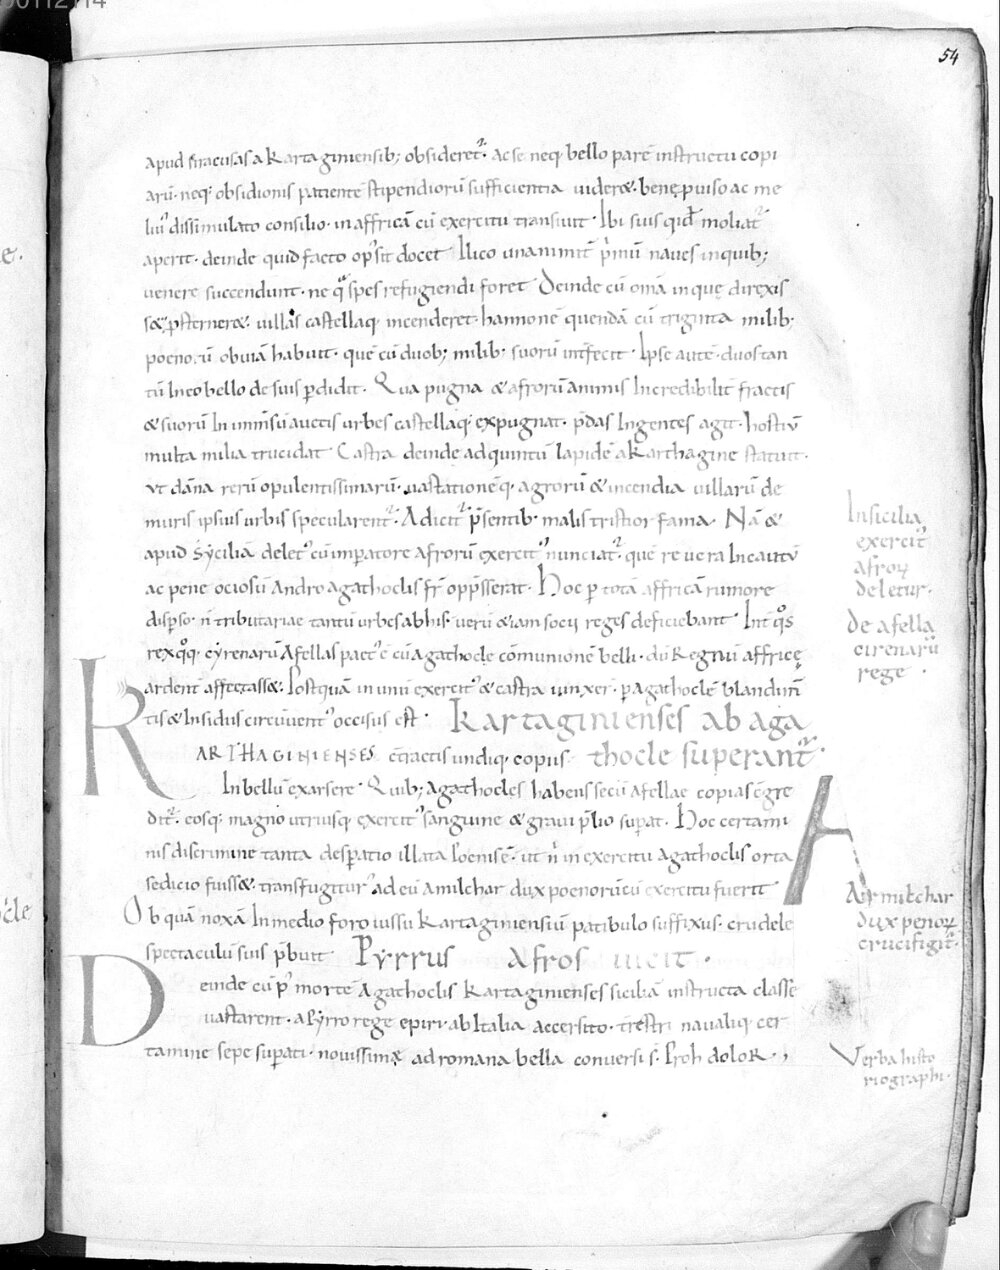 54
apud siracusas a Kartaginensib; obsideret᷒. ac se neq; bello parē instructu copi
arū. neq; obsidionis patiente stipendiorū sufficientia videret. bene puiso ac me
liu᷒ dissimulato consilio. in affricā cū exercitu transiuit. Ibi suis qid moliat᷒
aperit. deinde quid facto op᷒ sit docet Ilico unanimit̄ p̄mū naues in quib;
venere succendunt. ne q̄ spes refugiendi foret Deinde cū om̄a in que direxis
set psterneret. villas castellaq; incenderet. hannonē quendā cū triginta milib;
poenorū obuiā habuit. quē cū duob; milib; suorū int̄fecit. Ipse autē. duos tan
tū In eo bello de suis pdidit. Qua pugna et afrorū animis Incredibilit̄ fractis
et suorū In inm̄sū auctis urbes castellaq; expugnat. p̄das Ingentes agit. hostiū
multa milia trucidat Castra deinde ad quintū lapidē a Karthagine statuit.
ut dāna rerū opulentissimarū. vastationēq; agrorū et incendia villarū de
muris ipsius urbis specularent᷒. Adicit᷒ p̄sentib; malis tristior fama. Nā et
apud Syciliā delet᷒ cū imperatore Afrorū exercit᷒ nunciat᷒. quē re vera Incautū
ac pene ociosū Andro agathoclis fr̄ opp̄sserat. Hoc p totā affricā rumore
disp̄so. ñ tributariae tantū urbes ab his. verū et iam socii reges deficiebant Int̄ q̊s
rex q̊q; cyrenarū Afellas pact᷒ ē cū Agathocle cōmunionē belli. dū Regnū affricę
ardent̄ affectasset. Postquā in unū exercit᷒ et castra iunxer̄. p Agathoclē blandim̄
tis et Insidiis circūuent᷒ occisus est. Kartaginienses ab aga
KARTHAGINIENSES cōtractis undiq; copiis thocle superant᷒.
In bellū exarsere. Quib; Agathocles habens secū Afellae copias cōgre
dit᷒. eosq; magno utriusq; exercit᷒ sanguine et graui p̄lio supat. Hoc certami
nis discrimine tanta despatio illata Poenis ē. ut ñ in exercitu Agathoclis orta
sedicio fuisset. transfugitur᷒ ad eū Amilchar dux poenorū cū exercitu fuerit
Ob quā noxā In medio foro iussu Kartaginiensiū patibulo suffixus. crudele
spectaculū suis p̄buit Pyrrus Afros uicit.
Deinde cū p᷒ mortē Agathoclis Kartaginienses siciliā instructa classe
vastarent. a Pyrro rege epiri. ab Italia accersito. trēstri navaliq; cer
tamine sepe supati. novissimę ad romana bella conversi s̄. Proh dolor.,
In sicilia
exercit᷒
afroꝝ
deletur.
De afella
cirenarū
rege.
A
Armilchar
dux penoꝝ
crucifigit᷒.
Verba histo
riographi.